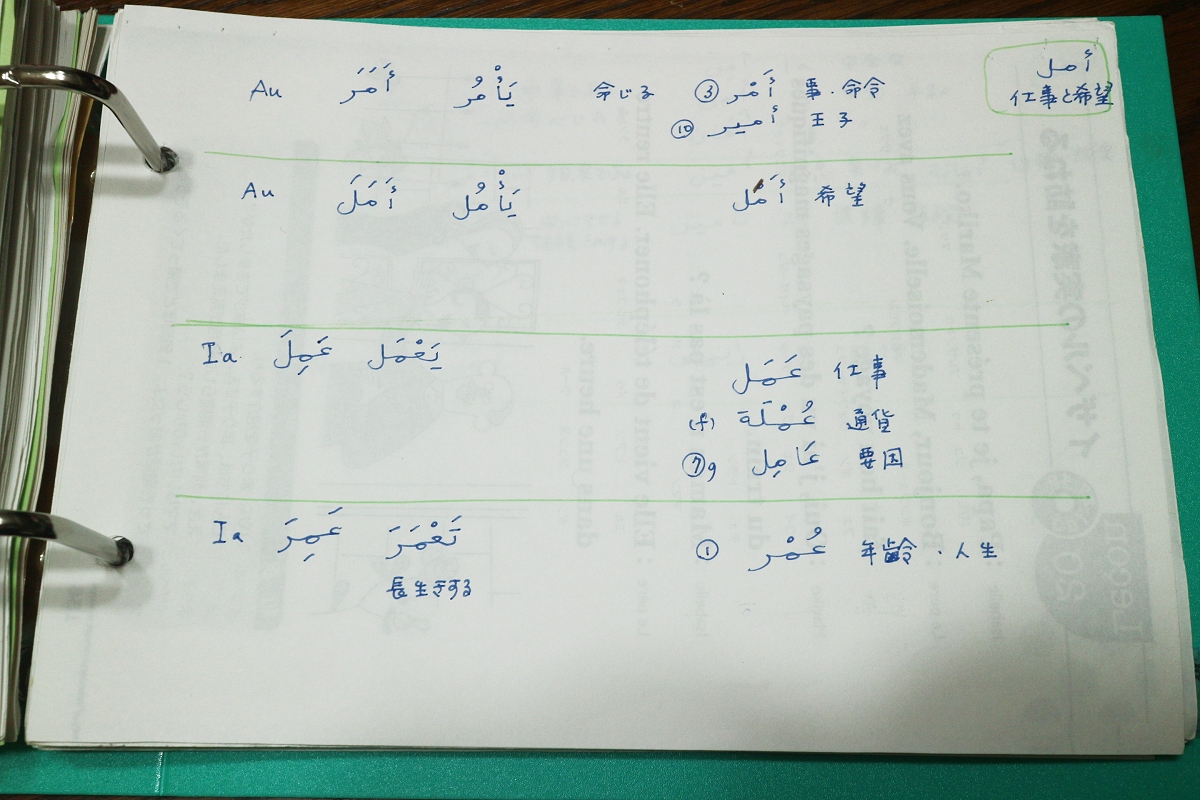 أمل
仕事と希望
Au أَمَرَ يَأْمُر 命じる ③ أَمْر 事・命令
⑩ أمير 王子
Au أَمَلَ يَأْمُل أَمَل 希望
Ia. عَمِلَ يَعْمَل
عَمَل 仕事
(f) عُمْلَة 通貨
⑦g عَامِل 要因
Ia عَمِرَ تَعْمَرَ ① عُمْر 年齢・人生
長生きする